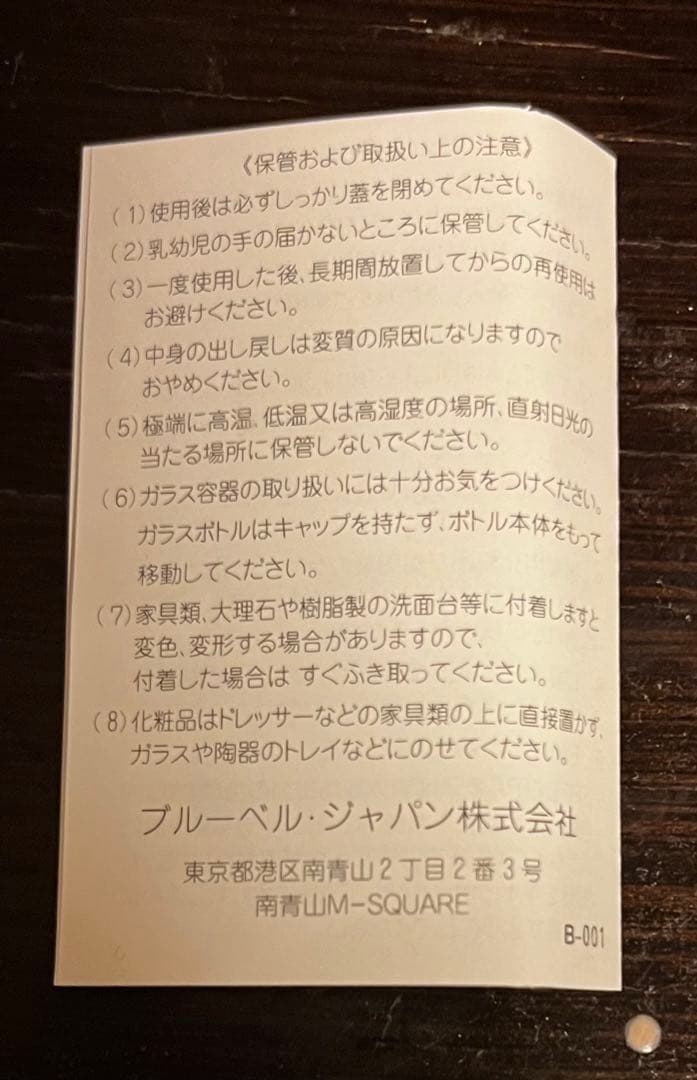 《保管および取扱い上の注意》
(1)使用後は必ずしっかり蓋を閉めてください。
(2)乳幼児の手の届かないところに保管してください。
(3)一度使用した後、長期間放置してからの再使用は
お避けください。
(4)中身の出し戻しは変質の原因になりますので
おやめください。
(5)極端に高温、低温又は高湿度の場所、直射日光の
当たる場所に保管しないでください。
(6)ガラス容器の取り扱いには十分お気をつけください。
ガラスボトルはキャップを持たず、ボトル本体をもって
移動してください。
(7)家具類、大理石や樹脂製の洗面台等に付着しますと
変色、変形する場合がありますので、
付着した場合は すぐふき取ってください。
(8)化粧品はドレッサーなどの家具類の上に直接置かず、
ガラスや陶器のトレイなどにのせてください。
ブルーベル・ジャパン株式会社
東京都港区南青山2丁目2番3号
南青山M-SQUARE
B-001